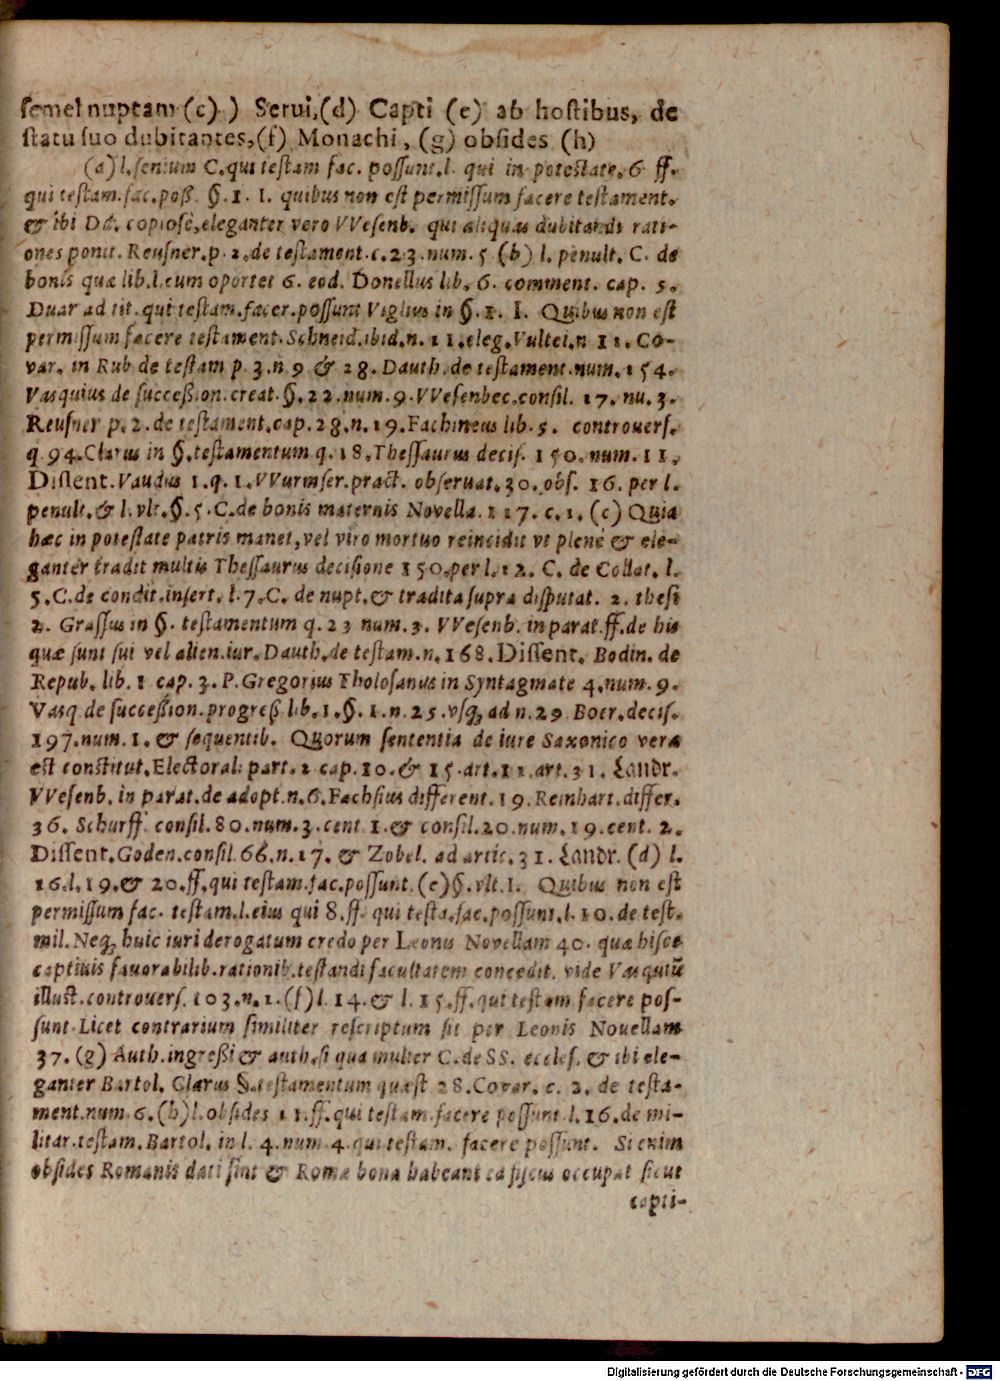 semel nuptam (c) ) Serui,(d) Capti (e) ab hostibus, de
statu suo dubitantes,(f) Monachi, (g) obsides (h)
(a) l. senium C. qui testam fac. possunt. l. qui in potestate. 6 ff.
qui testam. fac. poß. §. 1. I. quibus non est permissum facere testament.
& ibi Dd. copiosè, eleganter vero VVesenb. qui aliquas dubitandi rati-
ones ponit. Reusner. p. 2. de testament. c. 23. num. 5 (b) l. penult. C. de
bonis quæ lib. l. cum oportet 6. eod. Donellus lib. 6. comment. cap. 5.
Duar ad tit. qui testam. facer. possunt Viglius in §. 1. I. Quibus non est
permissum facere testament. Schneid. ibid. n. 11. eleg. Vultei. n 11. Co-
var. in Rub de testam p. 3. n. 9 & 28. Dauth. de testament. num. 154.
Vasquius de succeßion. creat. §. 22. num. 9. VVesenbec. consil. 17. nu. 3.
Reusner p. 2. de testament. cap. 28. n. 19. Fachineus lib. 5. controuers.
q. 94. Clarus in §. testamentum q. 18. Thessaurus decis. 150. num. 11.
Dissent. Vaudus 1. q. 1. VVurmser. pract. obseruat. 30. obs. 16. per l.
penult. & l. vlt. §. 5. C. de bonis maternis Novella. 117. c. 1. (c) Quia
hæc in potestate patris manet, vel viro mortuo reincidit vt plenè & ele-
ganter tradit multis Thessaurus decisione 150. per l. 12. C. de Collat. l.
5. C. de condit. insert. l. 7. C. de nupt. & tradita supra disputat. 2. thesi
2. Grassus in §. testamentum q. 23 num. 3. VVesenb. in parat. ff. de his
quæ sunt sui vel alien. iur. Dauth. de testam. n. 168. Dissent. Bodin. de
Repub. lib. 1 cap. 3. P. Gregorius Tholosanus in Syntagmate 4. num. 9.
Vasq. de succeßion. progreß lib. 1. §. 1. n. 25. vsq; ad n. 29 Boer. decis.
197. num. 1. & sequentib. Quorum sententia de iure Saxonico vera
est constitut. Electoral. part. 2 cap. 10. & 15. art. 11. art. 31. Landr.
VVesenb. in parat. de adopt. n. 6. Fachsius different. 19. Reinhart. differ.
36. Schurff. consil. 80. num. 3. cent. 1. & consil. 20. num. 19. cent. 2.
Dissent. Goden. consil 66. n. 17. & Zobel. ad artic. 31. Landr. (d) l.
16. l. 19. & 20. ff. qui testam. fac. possunt. (e) §. vlt. I. Quibus non est
permissum fac. testam. l. eius qui 8. ff. qui testa. fac. possunt. l. 10. de test.
mil. Neq; huic iuri derogatum credo per Leonis Novellam 40. quæ hisce
captiuis fauorabilib. rationib. testandi facultatem concedit. vide Vasquiũ
illust. controuers. 103. n. 1. (f) l. 14. & l. 15. ff. qui testam facere pos-
sunt. Licet contrarium similiter rescriptum sit per Leonis Nouellam
37. (g) Auth. ingreßi & auth. si qua mulier C. de SS. eccles. & ibi ele-
ganter Bartol. Clarus §. testamentum quæst 28. Covar. c. 2. de testa-
ment. num. 6. (h) l. obsides 11. ff. qui testam. facere possunt l. 16. de mi-
litar. testam. Bartol. in l. 4. num. 4. qui testam. facere possunt. Si enim
obsides Romanis dati sint & Romæ bona habeant ea fiscus occupat sicut
capti-
Digitalisierung gefördert durch die Deutsche Forschungsgemeinschaft - DFG